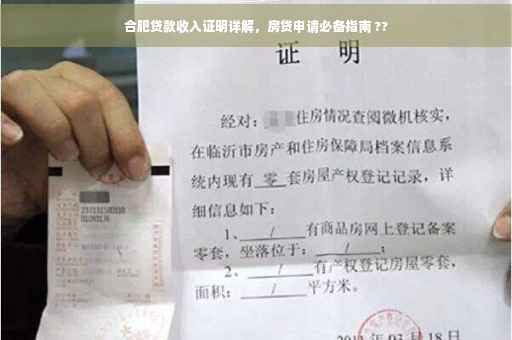 合肥贷款收入证明详解，房贷申请必备指南 ??
证 明
经对：住房情况查阅微机核实，
在临沂市房产和住房保障局档案信息系
统内现有 零 套房屋产权登记记录，详
细信息如下：
1、 / 有商品房网上登记备案
零套，坐落位于： / ；
2、 / 有产权登记房屋零套，
面积： / 平方米。
月18日